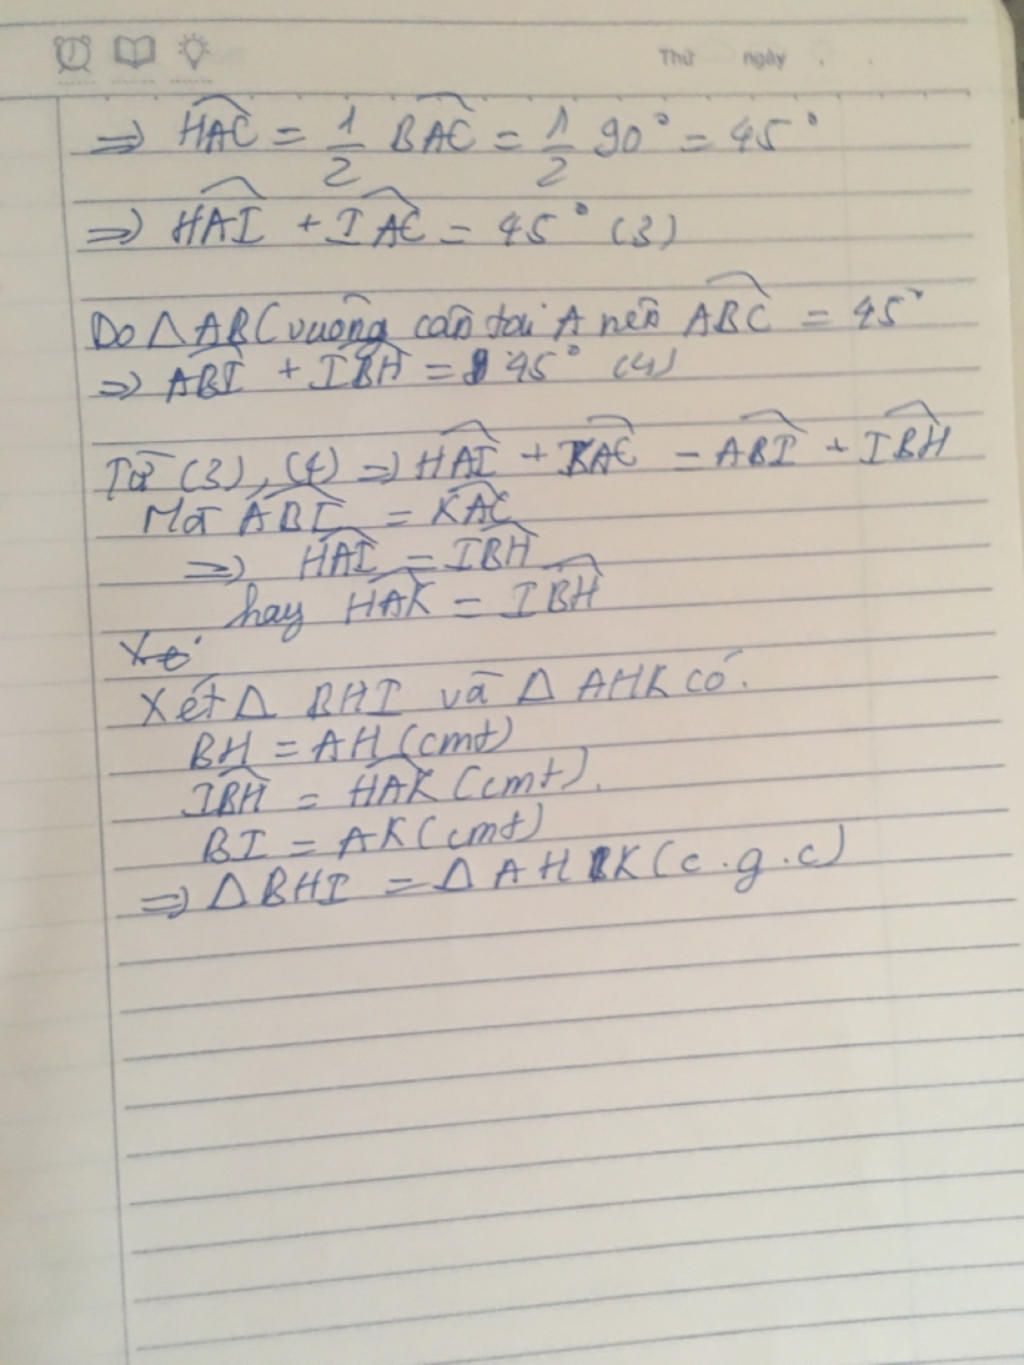 Thứ ngày
=> HAC = 1/2 BAC = 1/2 90° = 45°
=> HAI + IAC = 45° (3)
Do △ ABC vuông cân tại A nên ABC = 45°
=> ABI + IBH = 45° (4)
Từ (3), (4) => HAI + KAC = ABI + IBH
Mà ABI = KAC
=> HAI = IBH
hay HAK = IBH
Xét △ BHI và △ AHK có.
BH = AH (cmt)
IBH = HAK (cmt).
BI = AK (cmt)
=> △ BHI = △ AHK (c.g.c)